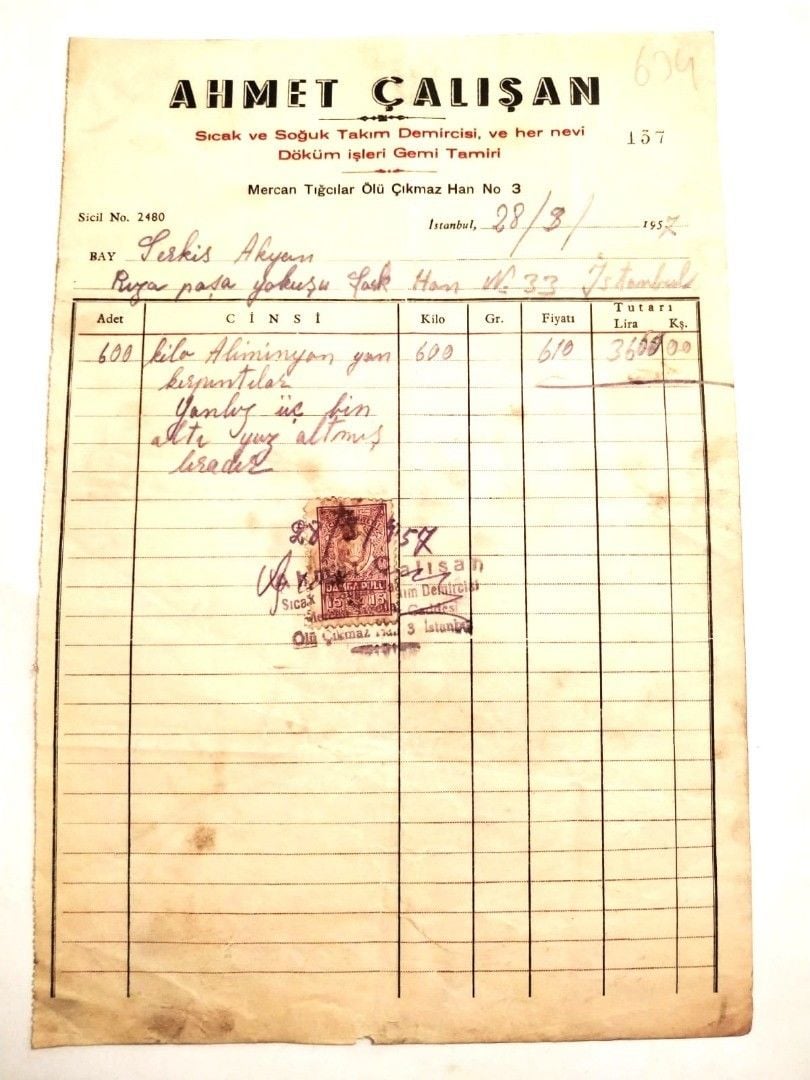 634
AHMET ÇALIŞAN
Sıcak ve Soğuk Takım Demircisi, ve her nevi
Döküm işleri Gemi Tamiri
157
Mercan Tığcılar Ölü Çıkmaz Han No 3
Sicil No. 2480
İstanbul, 28/3/ 1957
BAY Serkis Akyan
Rıza paşa yokuşu Han No 33 İstanbul
Adet CİNSİ Kilo Gr. Fiyatı Tutarı
Lira Kş.
600 kilo Aliminyon yan 600 610 3660 00
kırpıntılar
Yanlız üç bin
altı yuz altmış
liradır
28/3/957
Çalışan
DAMGA PULU
Sıcak Takım Demircisi
15 15
Caddesi
Ölü Çıkmaz Han 3 İstanbul